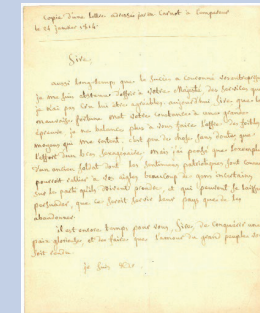 Copie d'une lettre adressée par Mr Carnot à l'empereur
le 24 janvier 1814.
Sire,
aussi longtemps que le succès a couronné vos entreprises
je me suis abstenu d'offrir à votre Majesté des services que
je n'ai pas cru lui être agréables. aujourd'hui, Sire, que la
mauvaise fortune met votre constance à une grande
épreuve, je ne balance plus à vous faire l'offre des faibles
moyens qui me restent. c'est peu des chose sans doute que
l'effort d'un bras sexagénaire. mais j'ai pensé que l'exemple
d'un ancien soldat dont les sentimens patriotiques sont connus
pourroit rallier à vos aigles beaucoup de gens incertains
sur le parti qu'ils doivent prendre, et qui peuvent se laisser
persuader, que ce seroit servir leur pays que de les
abandonner.
il est encore temps pour vous, Sire, de conquérir une
paix glorieuse, et de faire que l'amour du grand peuple vous
soit rendu.
je suis